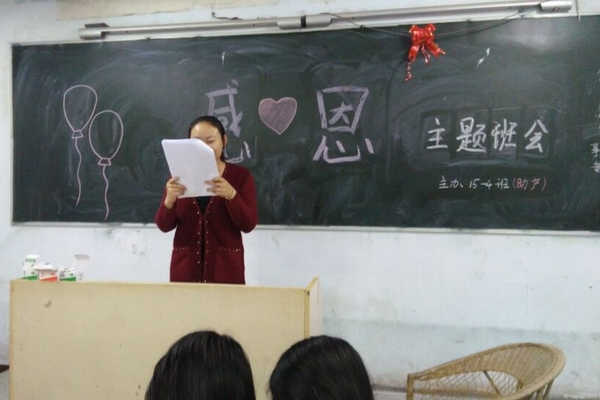 感恩
主题班会
主办 15-4班(助产)